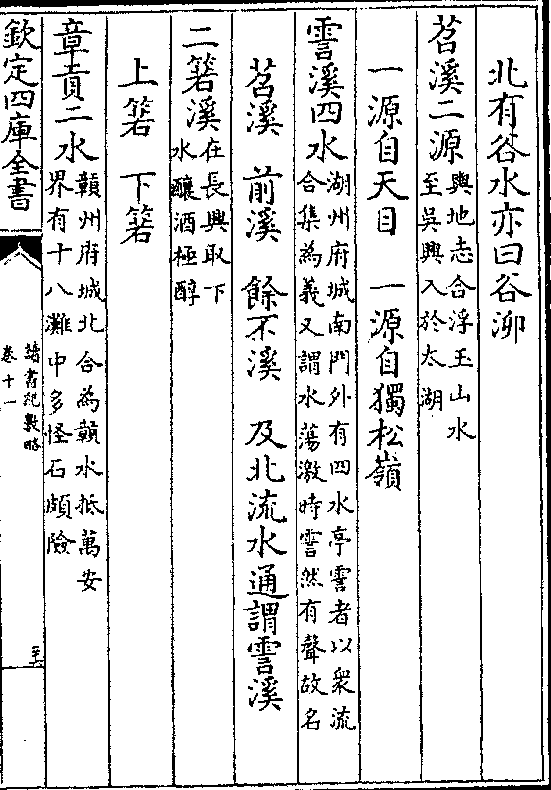 北有谷水亦曰谷泖
苕溪二源
輿地志合浮玉山水
至吳興入於太湖
一源自天目　一源自獨松嶺
霅溪四水
湖州府城南門外有四水亭霅者以衆流
合集為義又謂水蕩激時霅然有聲故名
苕溪　前溪　餘不溪　及北流水通謂霅溪
二箬溪
在長興取下
水釀酒極醇
上箬　下箬
章貢二水
贛州府城北合為贛水抵萬安
界有十八灘中多怪石頗險
欽定四庫全書
讀書紀數略
卷十一